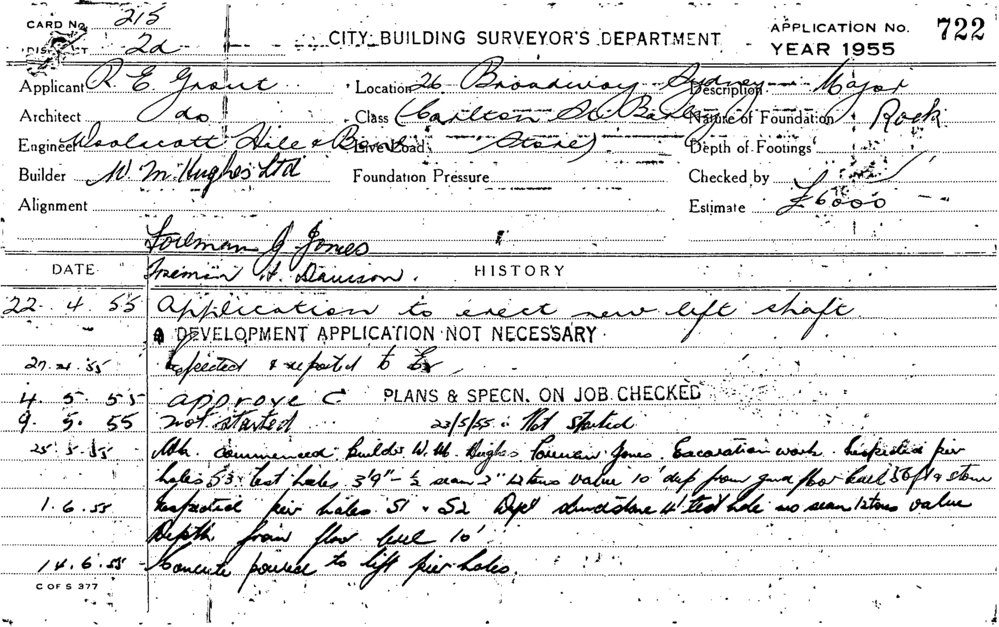 CARD No. 215
DISTRICT 2d
CITY BUILDING SURVEYOR'S DEPARTMENT
APPLICATION No. 722
YEAR 1955
Applicant R. E. Grant Location 26 Broadway Sydney Description Major
Architect do Class (Carlton & Barley Nature of Foundation Rock
Engineer Woolacott Hile & Live Load Store) Depth of Footings
Builder W. M. Hughes Ltd Foundation Pressure Checked by
Alignment Estimate £6000 —
Foreman G Jones
Foreman A. Dawson.
DATE HISTORY
22 4 55 Application to erect new lift shaft
DEVELOPMENT APPLICATION NOT NECESSARY
27.4.55 Inspected & reported to
4 5 55 approve C PLANS & SPECN. ON JOB CHECKED
9 5 55 not started 23/5/55 Not started
25.5.55 commenced. Builder W. M. Hughes Foreman Jones. Excavation work. Inspected pier
holes S3 test hole 3'9" - ½ seam 2" 12 tons value 10' deep from floor level
1.6.55 Inspected pier holes S1 & S2 sandstone 4' test hole no seam 12 tons value
Depth from floor level 10'
14.6.55 Concrete poured to lift pier holes.
C OF S 377